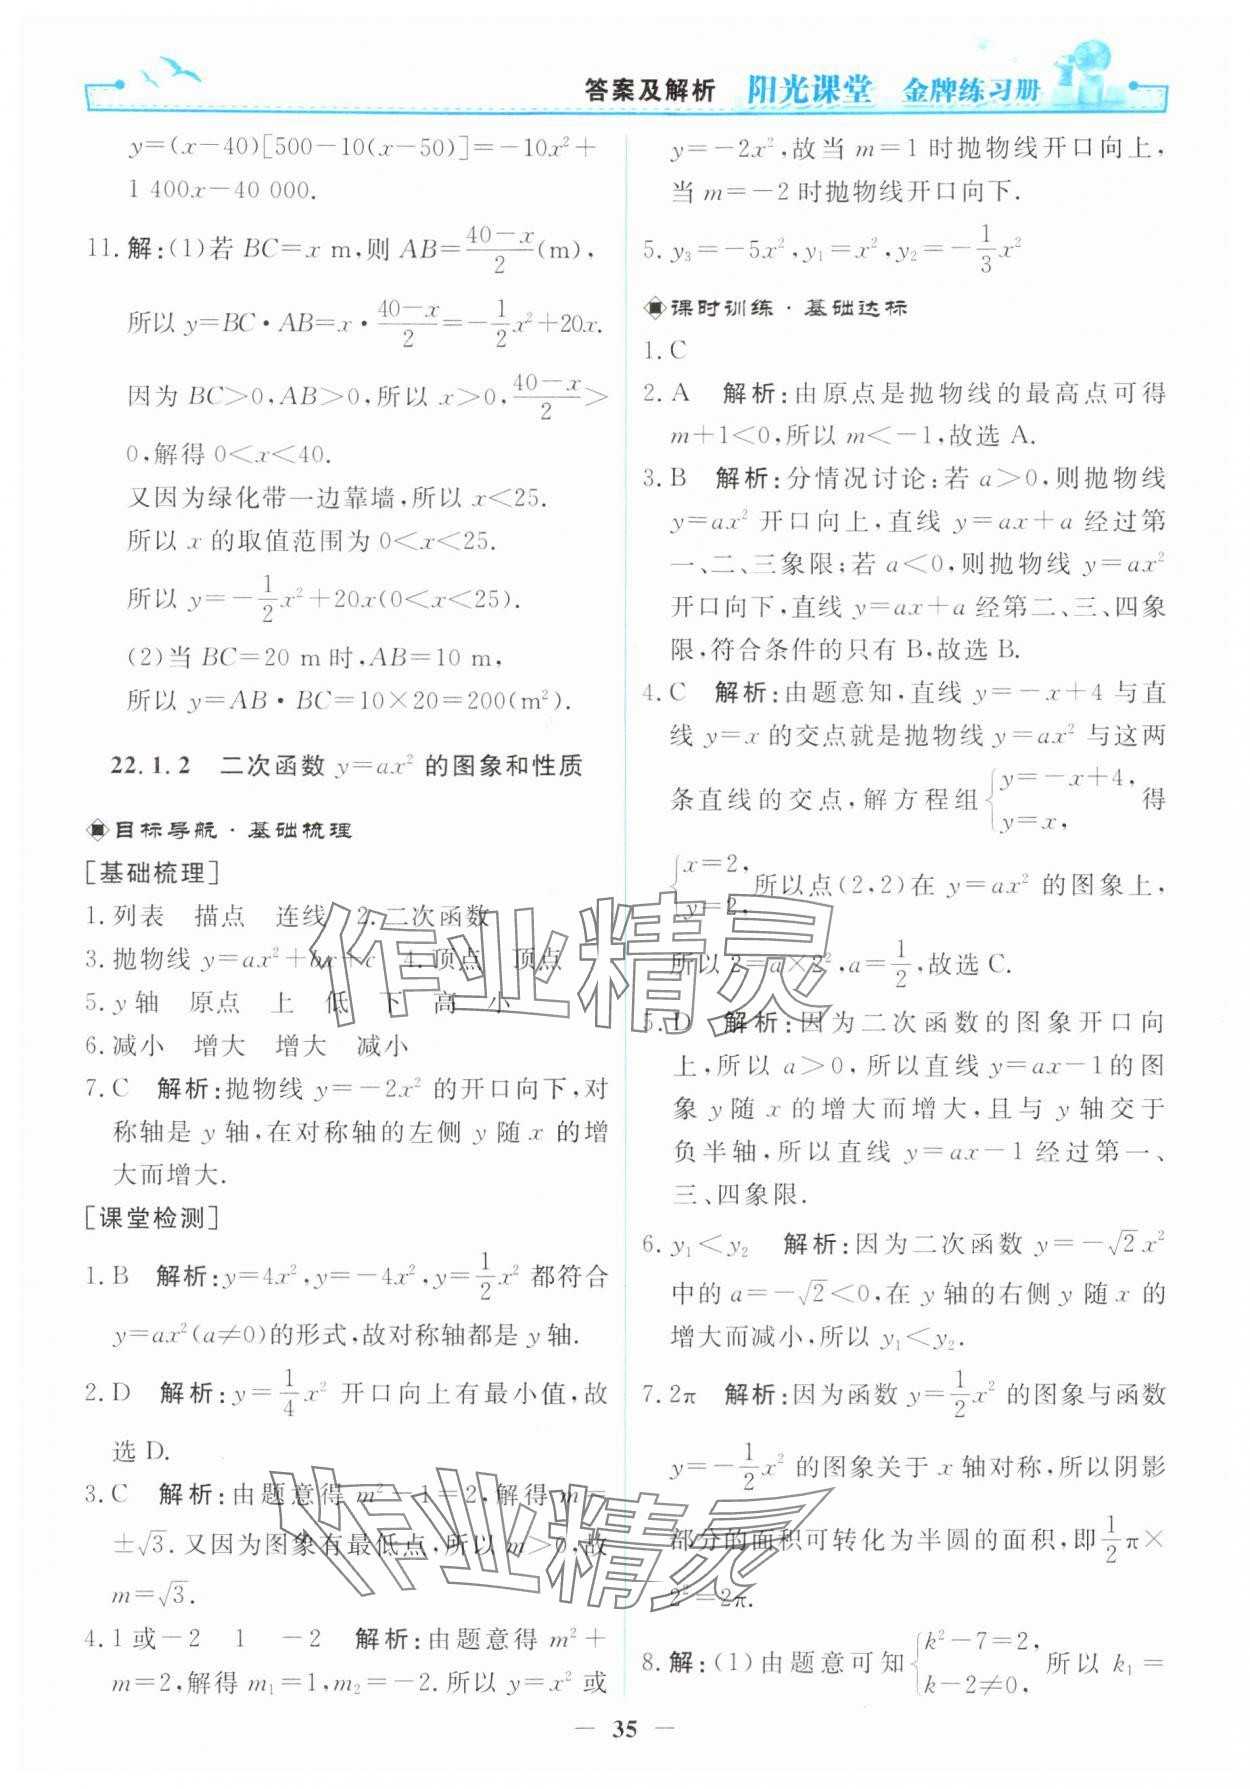 答案及解析 阳光课堂 金牌练习册
y=(x-40)[500-10(x-50)]=-10x²+
1 400x-40 000.
11. 解:(1)若 BC=x m,则 AB=\frac{40-x}{2}(m),
所以 y=BC·AB=x·\frac{40-x}{2}=-\frac{1}{2}x²+20x.
因为 BC>0,AB>0,所以 x>0,\frac{40-x}{2}>
0,解得 0<x<40.
又因为绿化带一边靠墙,所以 x<25.
所以 x 的取值范围为 0<x<25.
所以 y=-\frac{1}{2}x²+20x(0<x<25).
(2)当 BC=20 m时,AB=10 m,
所以 y=AB·BC=10×20=200(m²).
22.1.2 二次函数 y=ax² 的图象和性质
目标导航·基础梳理
[基础梳理]
1. 列表 描点 连线 2. 二次函数
3. 抛物线 y=ax²+bx+c 4. 顶点 顶点
5. y轴 原点 上 低 下 高 小
6. 减小 增大 增大 减小
7. C 解析:抛物线 y=-2x² 的开口向下,对
称轴是 y 轴,在对称轴的左侧 y 随 x 的增
大而增大.
[课堂检测]
1. B 解析:y=4x²,y=-4x²,y=\frac{1}{2}x² 都符合
y=ax²(a≠0)的形式,故对称轴都是 y 轴.
2. D 解析:y=\frac{1}{4}x² 开口向上有最小值,故
选 D.
3. C 解析:由题意得 m²-1=2,解得 m=
±√3. 又因为图象有最低点,所以 m>0,故
m=√3.
4. 1 或-2 1 -2 解析:由题意得 m²+
m=2,解得 m₁=1,m₂=-2. 所以 y=x² 或
y=-2x²,故当 m=1 时抛物线开口向上,
当 m=-2 时抛物线开口向下.
5. y₃=-5x²,y₁=x²,y₂=-\frac{1}{3}x²
课时训练·基础达标
1. C
2. A 解析:由原点是抛物线的最高点可得
m+1<0,所以 m<-1,故选 A.
3. B 解析:分情况讨论:若 a>0,则抛物线
y=ax² 开口向上,直线 y=ax+a 经过第
一、二、三象限;若 a<0,则抛物线 y=ax²
开口向下,直线 y=ax+a 经第二、三、四象
限,符合条件的只有 B,故选 B.
4. C 解析:由题意知,直线 y=-x+4 与直
线 y=x 的交点就是抛物线 y=ax² 与这两
条直线的交点,解方程组{y=-x+4, y=x, 得
{x=2, y=2, 所以点(2,2)在 y=ax² 的图象上,
所以 2=a×2²,a=\frac{1}{2},故选 C.
5. D 解析:因为二次函数的图象开口向
上,所以 a>0,所以直线 y=ax-1的图
象 y 随 x 的增大而增大,且与 y 轴交于
负半轴,所以直线 y=ax-1 经过第一、
三、四象限.
6. y₁<y₂ 解析:因为二次函数 y=-√2x²
中的 a=-√2<0,在 y 轴的右侧 y 随 x 的
增大而减小,所以 y₁<y₂.
7. 2π 解析:因为函数 y=\frac{1}{2}x² 的图象与函数
y=-\frac{1}{2}x² 的图象关于 x 轴对称,所以阴影
部分的面积可转化为半圆的面积,即\frac{1}{2}π×
2²=2π.
8. 解:(1)由题意可知{k²-7=2, k-2≠0, 所以 k₁=
— 35 —
作业精灵
作业精灵